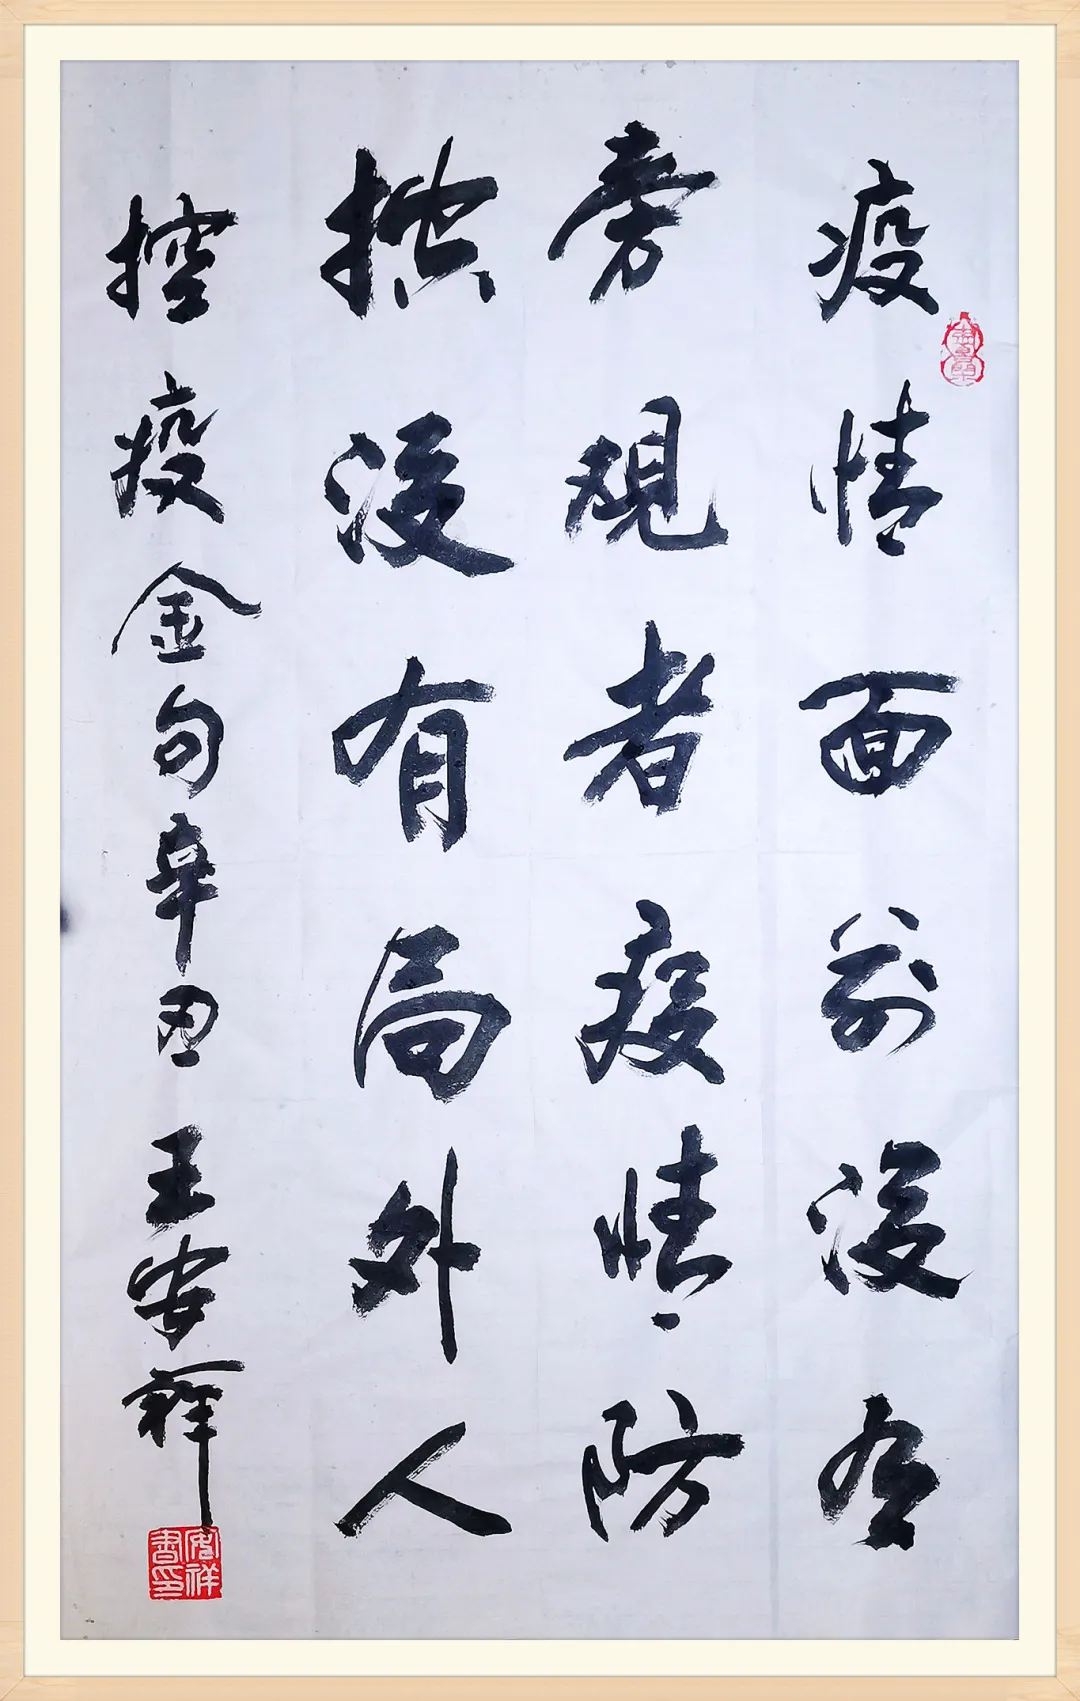 疫情面前没有
旁观者疫情防
控没有局外人
控疫金句辛丑王安祥
安祥書印